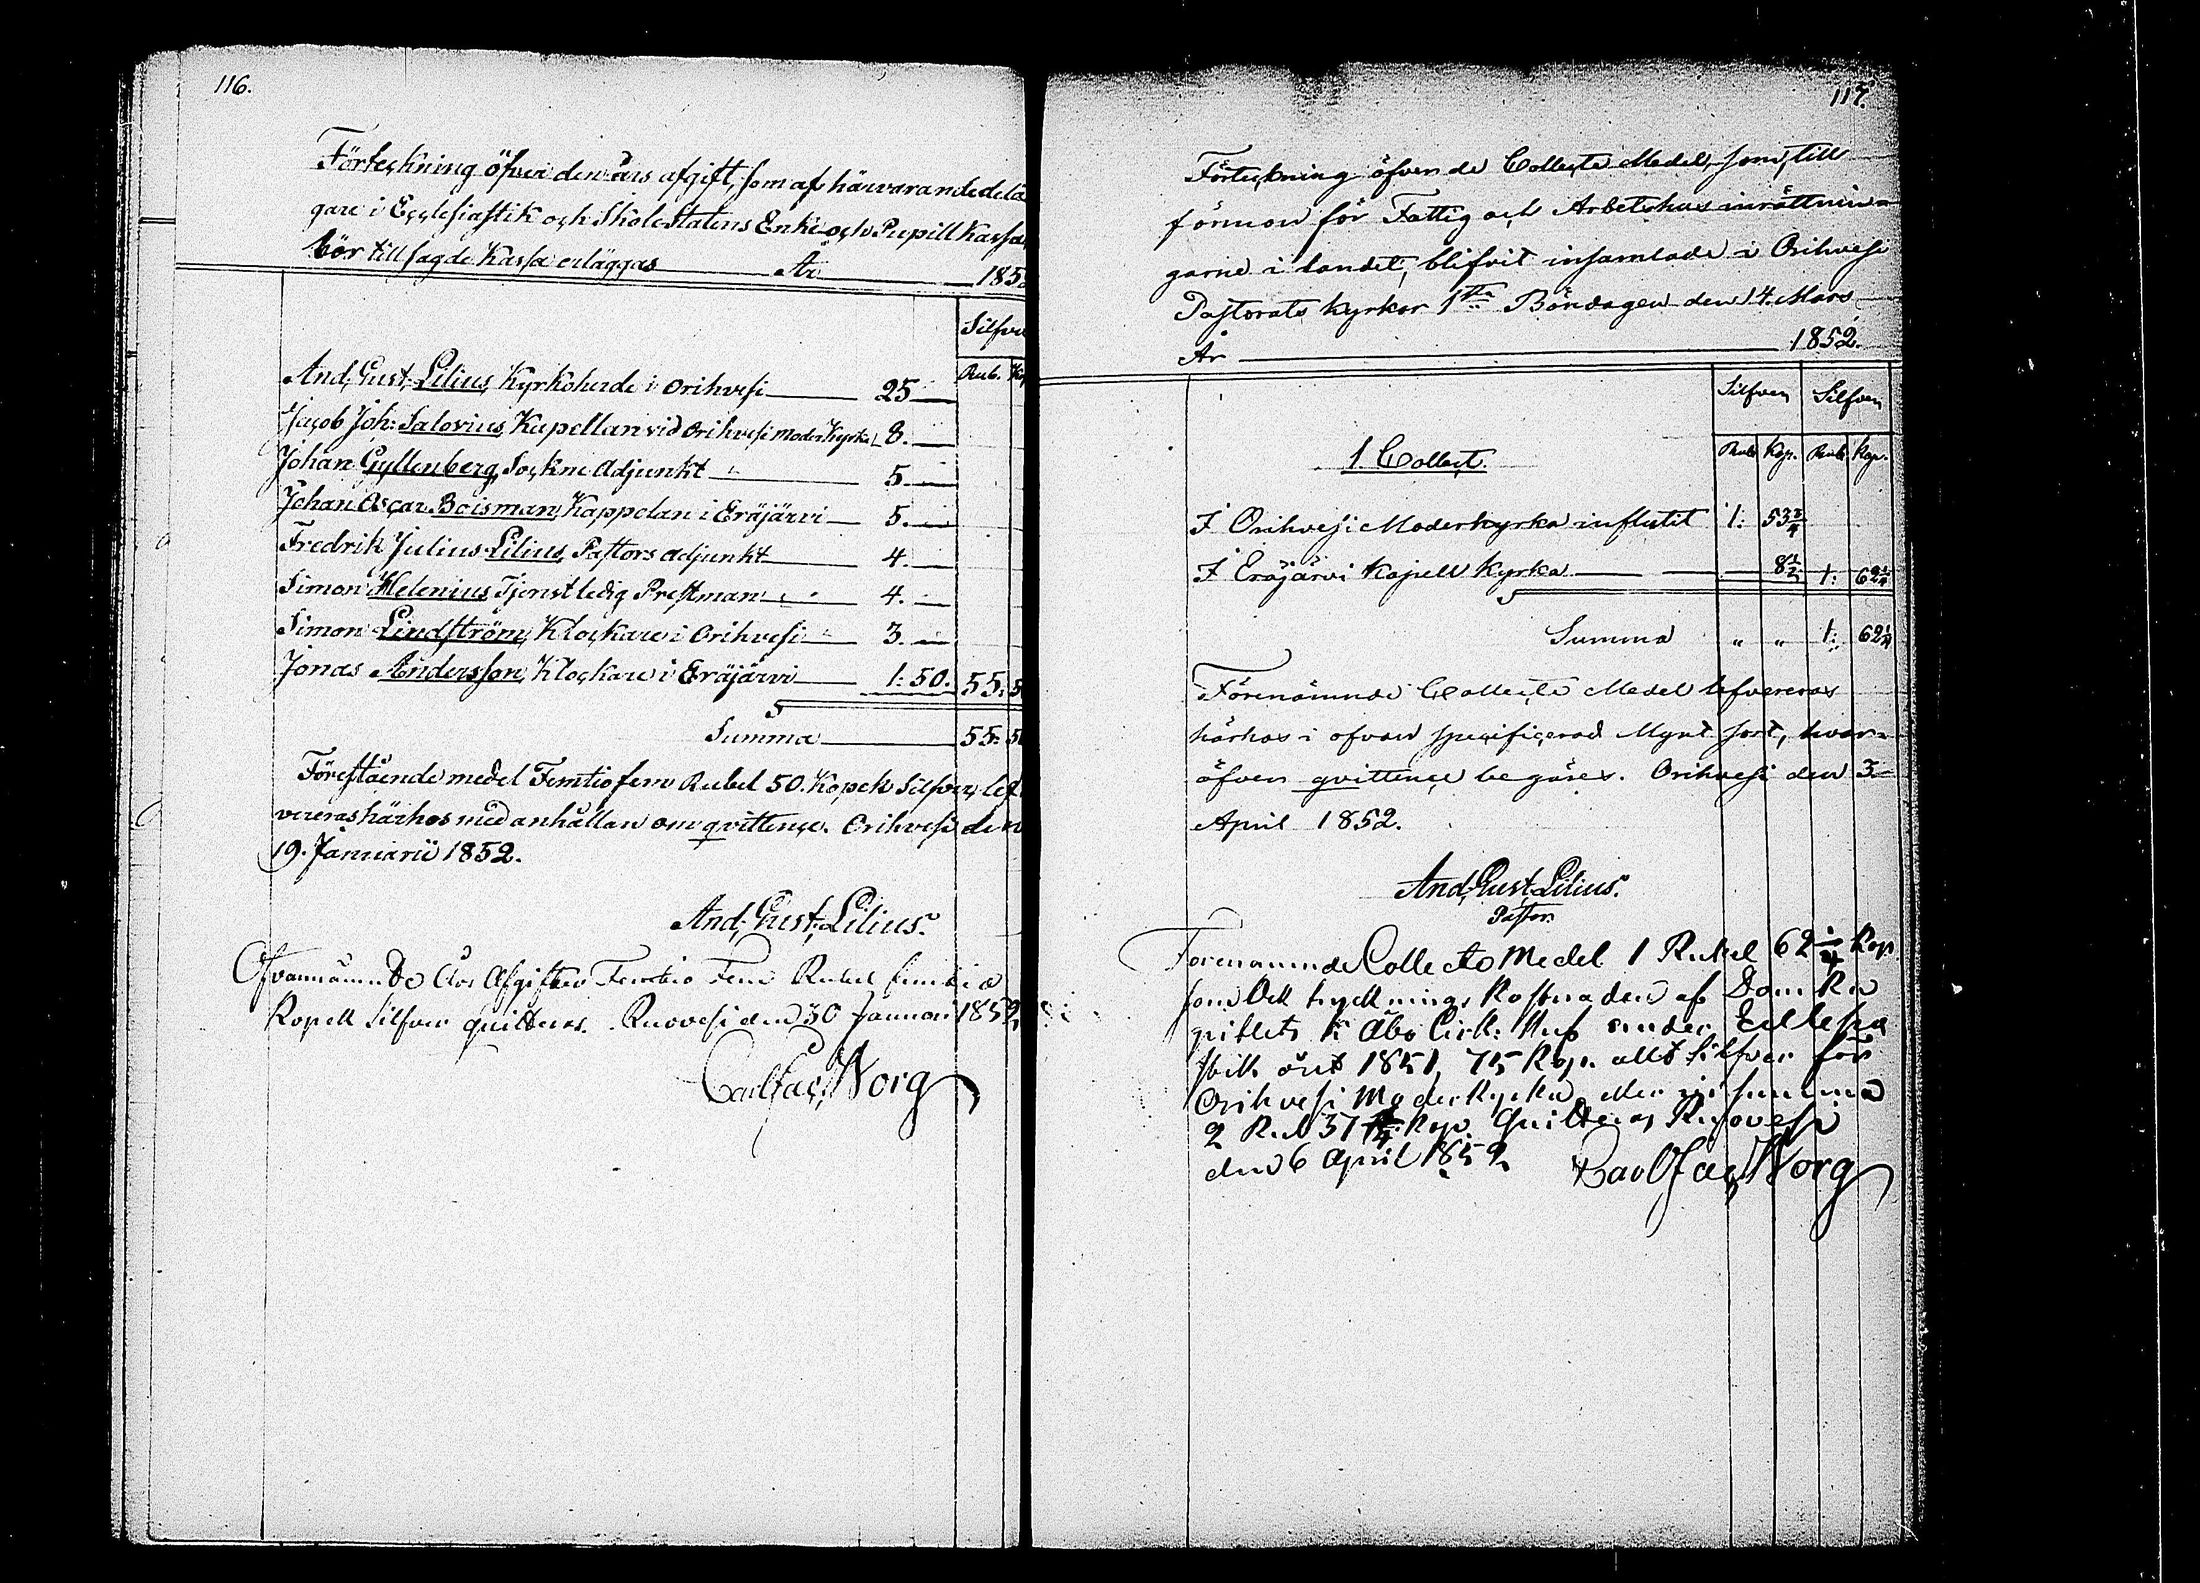 116.
Förteckning öfver den års afgift, som af härvarande delä
gare i Ecclesiastik och Skole Statens Enke och Pupill Kassa,
bör till sagde Kassa erläggas År 185
Silfve
Rub. Ko
And. Gust. Lilius, Kyrkoherde i Orihvesi 25
Jacob Joh: Salovius, Kapellan vid Orihvesi Moder Kyrka 8.
Johan Gyllenberg, Sockne Adjunkt 5
Johan Oscar Boisman, Kappelan i Eräjärvi 5.
Fredrik Julius Lilius, Pastors adjunkt 4.
Simon Helenius Tjenstledig Prestman 4.
Simon Lindström, Klockare i Orihvesi 3.
Jonas Andersson, Klockare i Eräjärvi 1: 50. 55: 5
Summa 55: 50
Förestående medel Femtiofem Rubel 50. Kopek Silfver, lef
vereras härhos med anhållan om qvittence. Orihvesi den
19. Januarii 1852.
And. Gust. Lilius.
Ofvannämnde Års Afgifter Femtio Fem Rubel femtio
Kopek Silfver quitteras. Ruovesi den 30 Januari 1852,
Carl Jac. Worg
117.
Förteckning öfver de Collecte Medel, som, till
förmon för Fattig och Arbetshus inrättnin-
garne i landet, blifvit insamlade i Orihvesi
Pastorats Kyrkor 1sta Böndagen den 14. Mars
År 1852.
Silfver Silfver
Rub. Kop. Rub. Kop.
1. Collect.
I Orihvesi Moderkyrka influtit 1: 53 3/4
I Eräjärvi Kapell Kyrka 8 1/2 1: 62 1/4
Summa " " 1: 62 1/4
Förenämnde Collecte Medel lefvereras
härhos i ofvan specificerad Mynt sort, hvar-
öfver qvittence begäres. Orihvesi den 3
April 1852.
And. Gust. Lilius.
Pastor.
Förenämnde Collecte Medel 1 Rubel 62 1/4 Kop
som Ock trycknings Kostnaden af Dom Ka
pitlets i Åbo Cirk: under Ecclesia
stik året 1851, 75 Kop. allt Silfver för
Orihvesi Moderkyrka, eller in summa
2 Rub 37 1/4 Kop. Quitteras Ruovesi
den 6 April 1852
Carl Jac. Worg